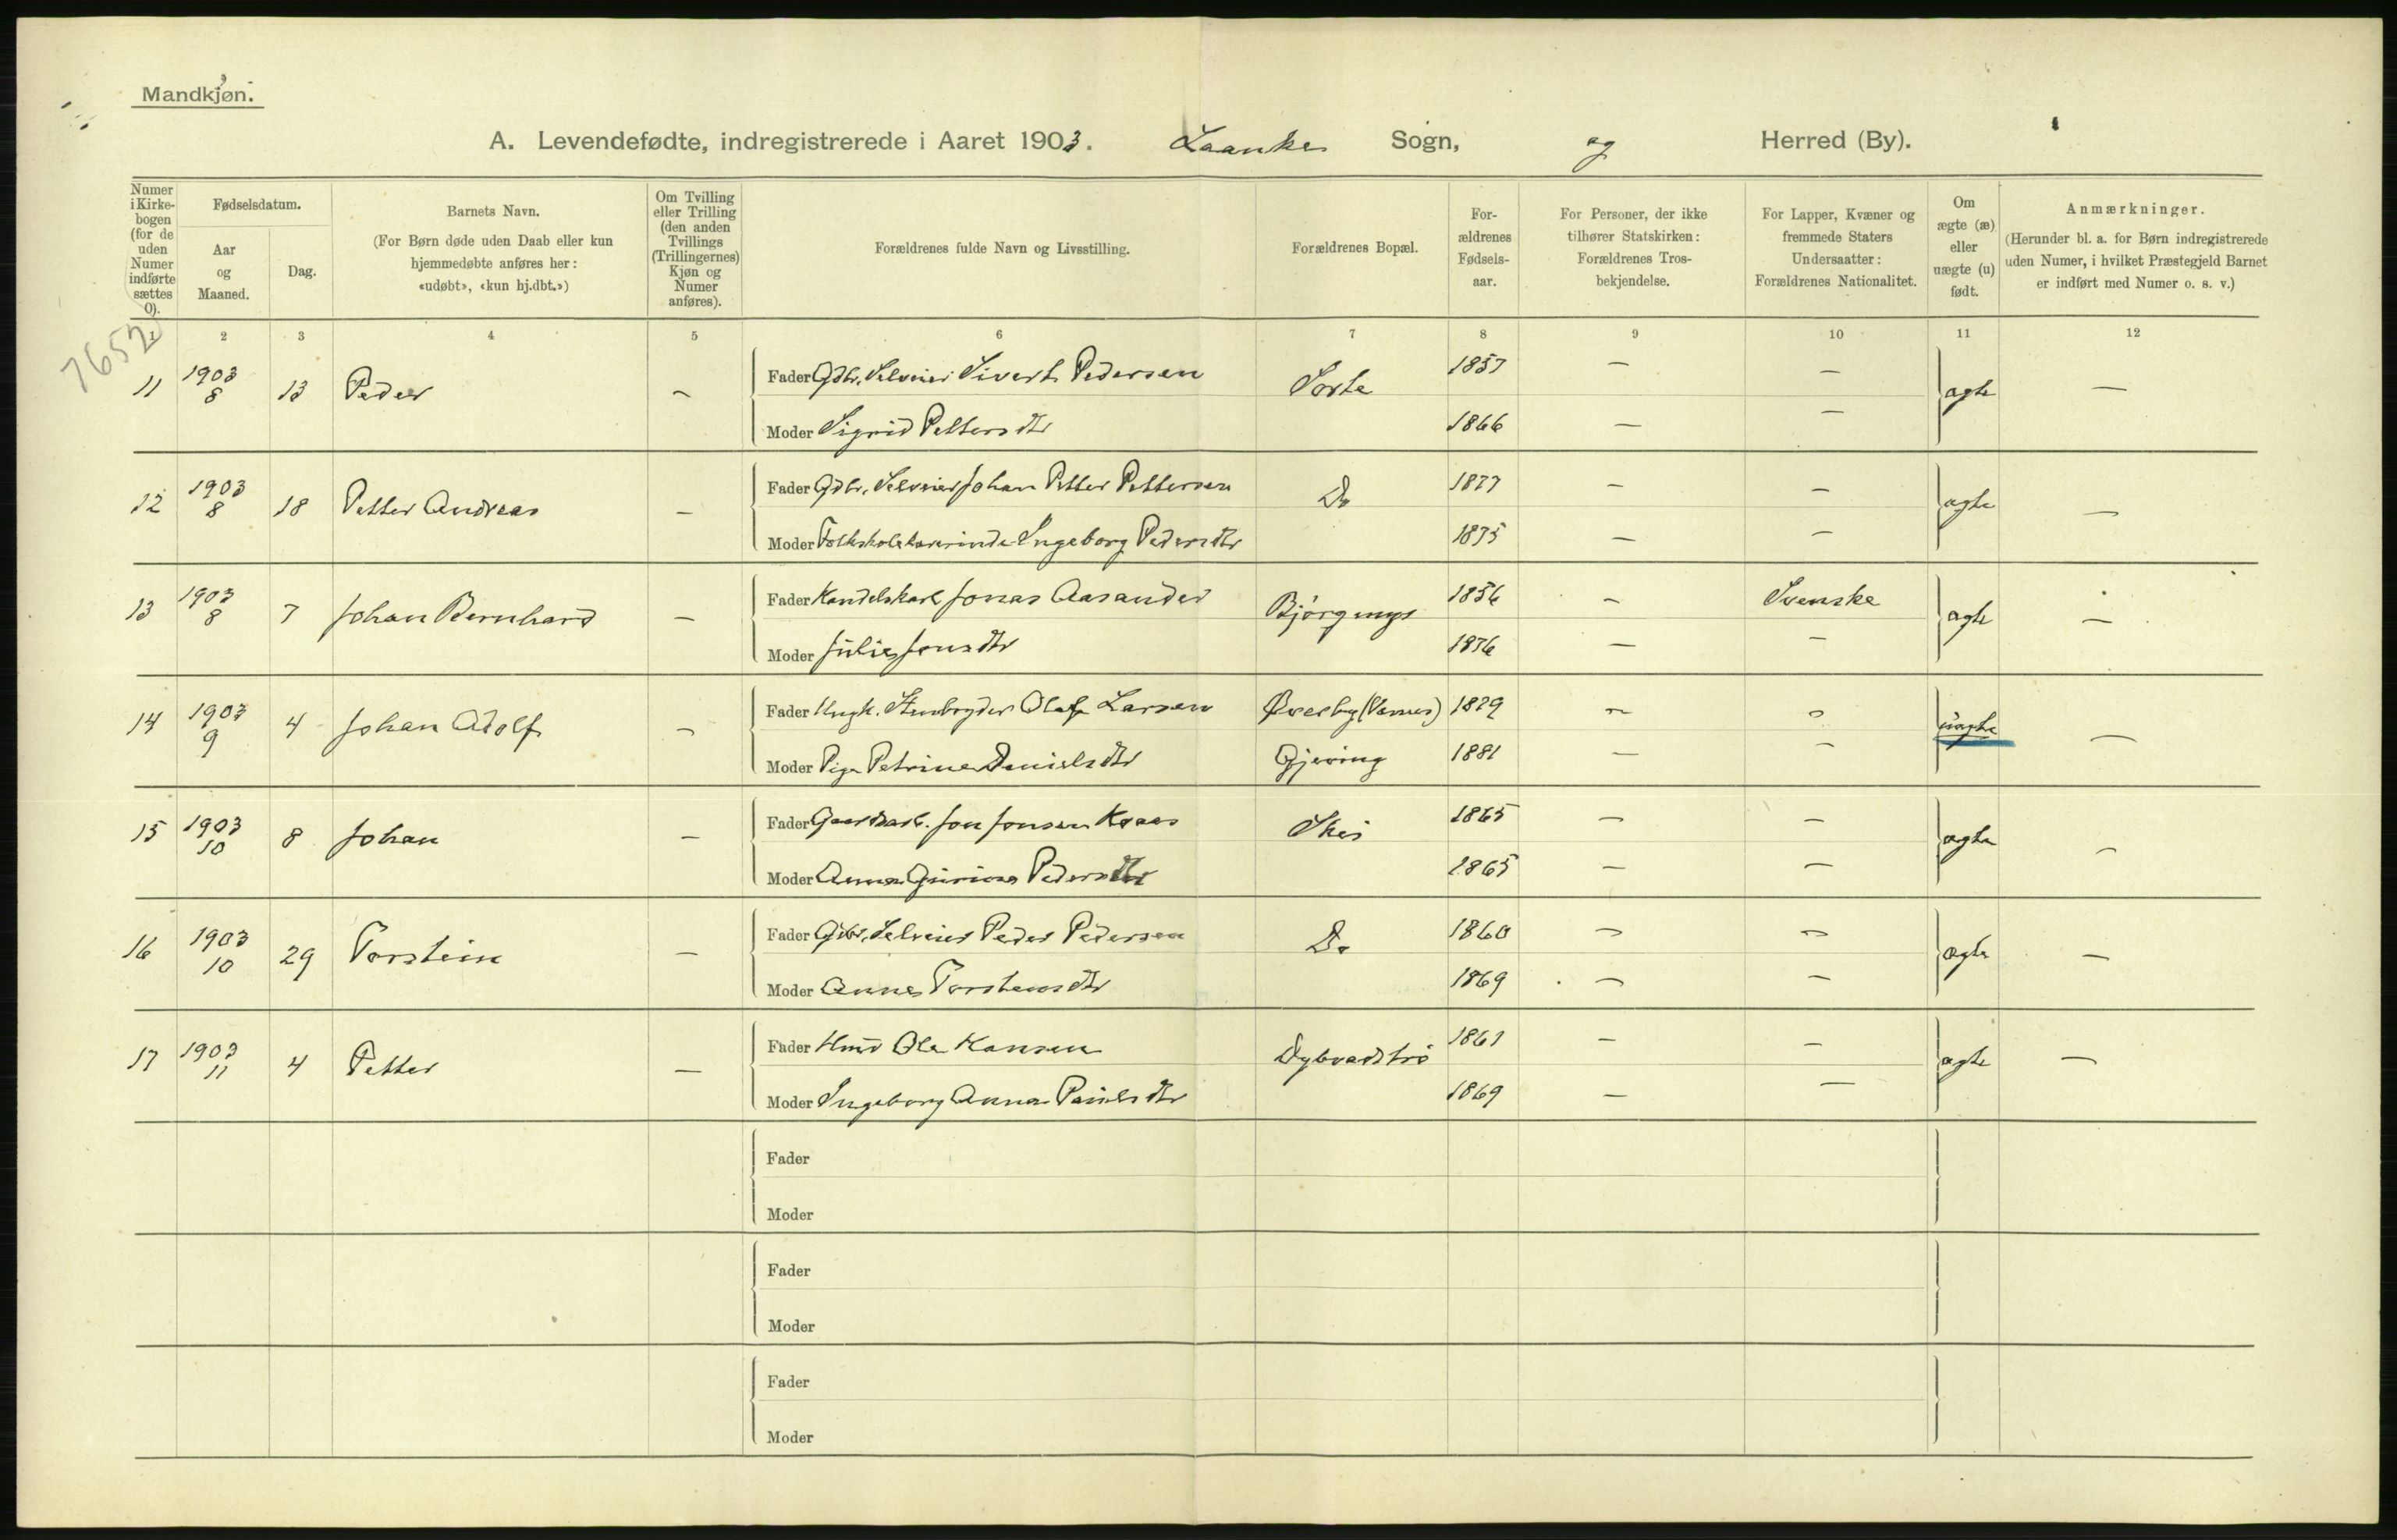 Mandkjøn.
A. Levendefødte, indregistrerede i Aaret 1903. Laanke Sogn, og Herred (By).
Numer i Kirkebogen (for de uden Numer indførte sættes 0).
Fødselsdatum.
Aar og Maaned.
Dag.
Barnets Navn.
(For Børn døde uden Daab eller kun hjemmedøbte anføres her: «udøbt», «kun hj.dbt.»)
Om Tvilling eller Trilling (den anden Tvillings (Trillingernes) Kjøn og Numer anføres).
Forældrenes fulde Navn og Livsstilling.
Forældrenes Bopæl.
Forældrenes Fødselsaar.
For Personer, der ikke tilhører Statskirken: Forældrenes Trosbekjendelse.
For Lapper, Kvæner og fremmede Staters Undersaatter: Forældrenes Nationalitet.
Om ægte (æ) eller uægte (u) født.
Anmærkninger.
(Herunder bl. a. for Børn indregistrerede uden Numer, i hvilket Præstegjeld Barnet er indført med Numer o. s. v.)
1 2 3 4 5 6 7 8 9 10 11 12
7652
11 1903 8 13 Peder — Fader Gdbr. Selveier Sivert Pedersen Sorte 1857 — — ægte —
Moder Sigrid Pettersdtr 1866 — —
12 1903 8 18 Petter Andreas — Fader Gdbr. Selveier Johan Petter Pettersen Do 1877 — — ægte —
Moder Folkskolelærerinde Ingeborg Pedersdtr 1875 — —
13 1903 8 7 Johan Bernhard — Fader Handelskarl Jonas Aasander 1856 — Svenske ægte —
Moder Julie Jonsdtr 1876 — —
14 1903 9 4 Johan Adolf — Fader Ungk. Stenbryder Olaf Larsen Øverby (Værnes) 1879 — — uægte —
Moder Pige Petrine Danielsdtr Gjeving 1881 — —
15 1903 10 8 Johan — Fader Gaardbarb. Jon Jonsen Kraas Skei 1865 — — ægte —
Moder Anna Gurina Pedersdtr 1865 — —
16 1903 10 29 Torstein — Fader Gdbr. Selveier Peder Pedersen Do 1860 — — ægte —
Moder Anne Torstensdtr 1869 — —
17 1903 11 4 Petter — Fader Hmd Ole Hansen Dybvadstrø 1861 — — ægte —
Moder Ingeborg Anna Paulsdtr 1869 — —
Fader
Moder
Fader
Moder
Fader
Moder